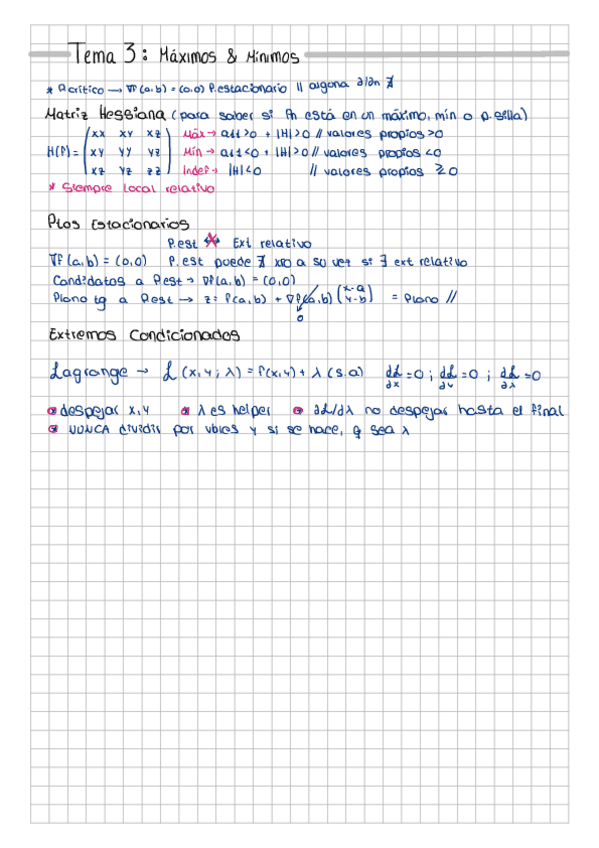 Tema 3: Máximos & Mínimos
* P.crítico → ∇f(a,b) = (0,0) P.estacionario // alguna ∂/∂n ∄
Matriz Hessiana (para saber si Pn está en un máximo, mín o p.silla)
H(f) = (xx xy xz Máx → a11>0 + |H|>0 // valores propios >0
xy yy yz Mín → a11<0 + |H|>0 // valores propios <0
xz yz zz) Indef → |H|<0 // valores propios ≷0
* Siempre local relativo
Ptos Estacionarios
P.est ⇎ Ext relativo
∇f(a,b) = (0,0) P.est puede ∄ xro a su vez si ∃ ext relativo
Candidatos a Pest → ∇f(a,b) = (0,0)
Plano tg a Pest → z = f(a,b) + ∇f(a,b) (x-a y-b) = Plano //
0
Extremos Condicionados
Lagrange → L (x,y;λ) = f(x,y) + λ (s.a) ∂L/∂x = 0 ; ∂L/∂y = 0 ; ∂L/∂λ = 0
* despejar x,y * λ es helper * ∂L/∂λ no despejar hasta el final
* NUNCA dividir por vbles y si se hace, q sea λ